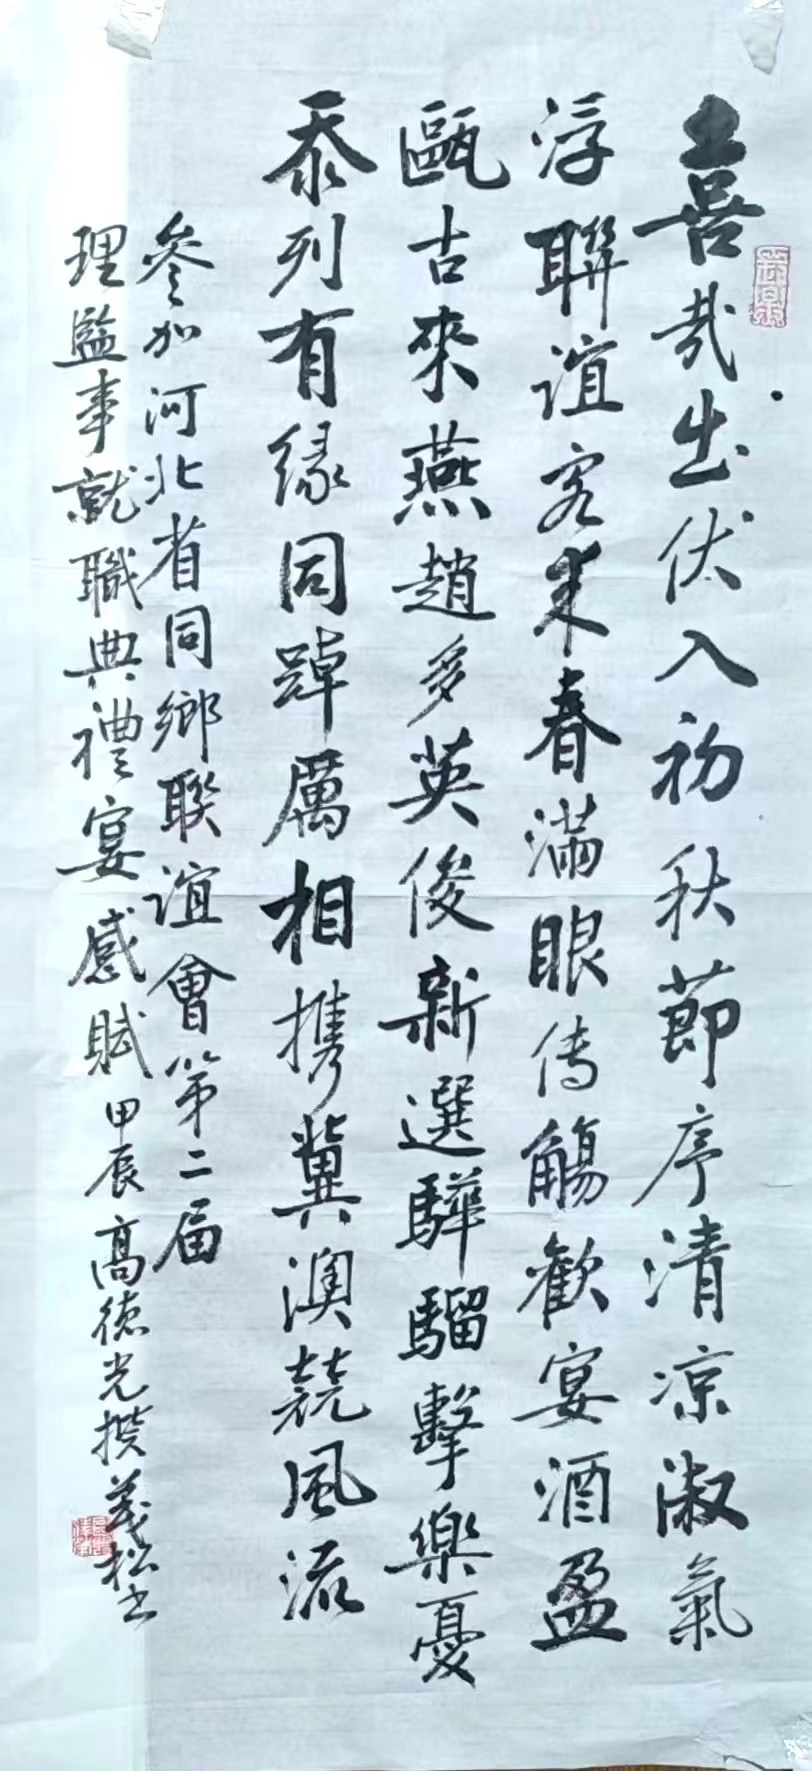 喜哉出伏入初秋節序清凉淑氣
浮聯誼客來春滿眼傳觴歡宴酒盈
甌古來燕趙多英俊新選驊騮擊樂憂
忝列有緣同踔厲相携冀澳競風流
參加河北省同鄉聯誼會第二届
理監事就職典禮宴感賦甲辰高德光撰義松书